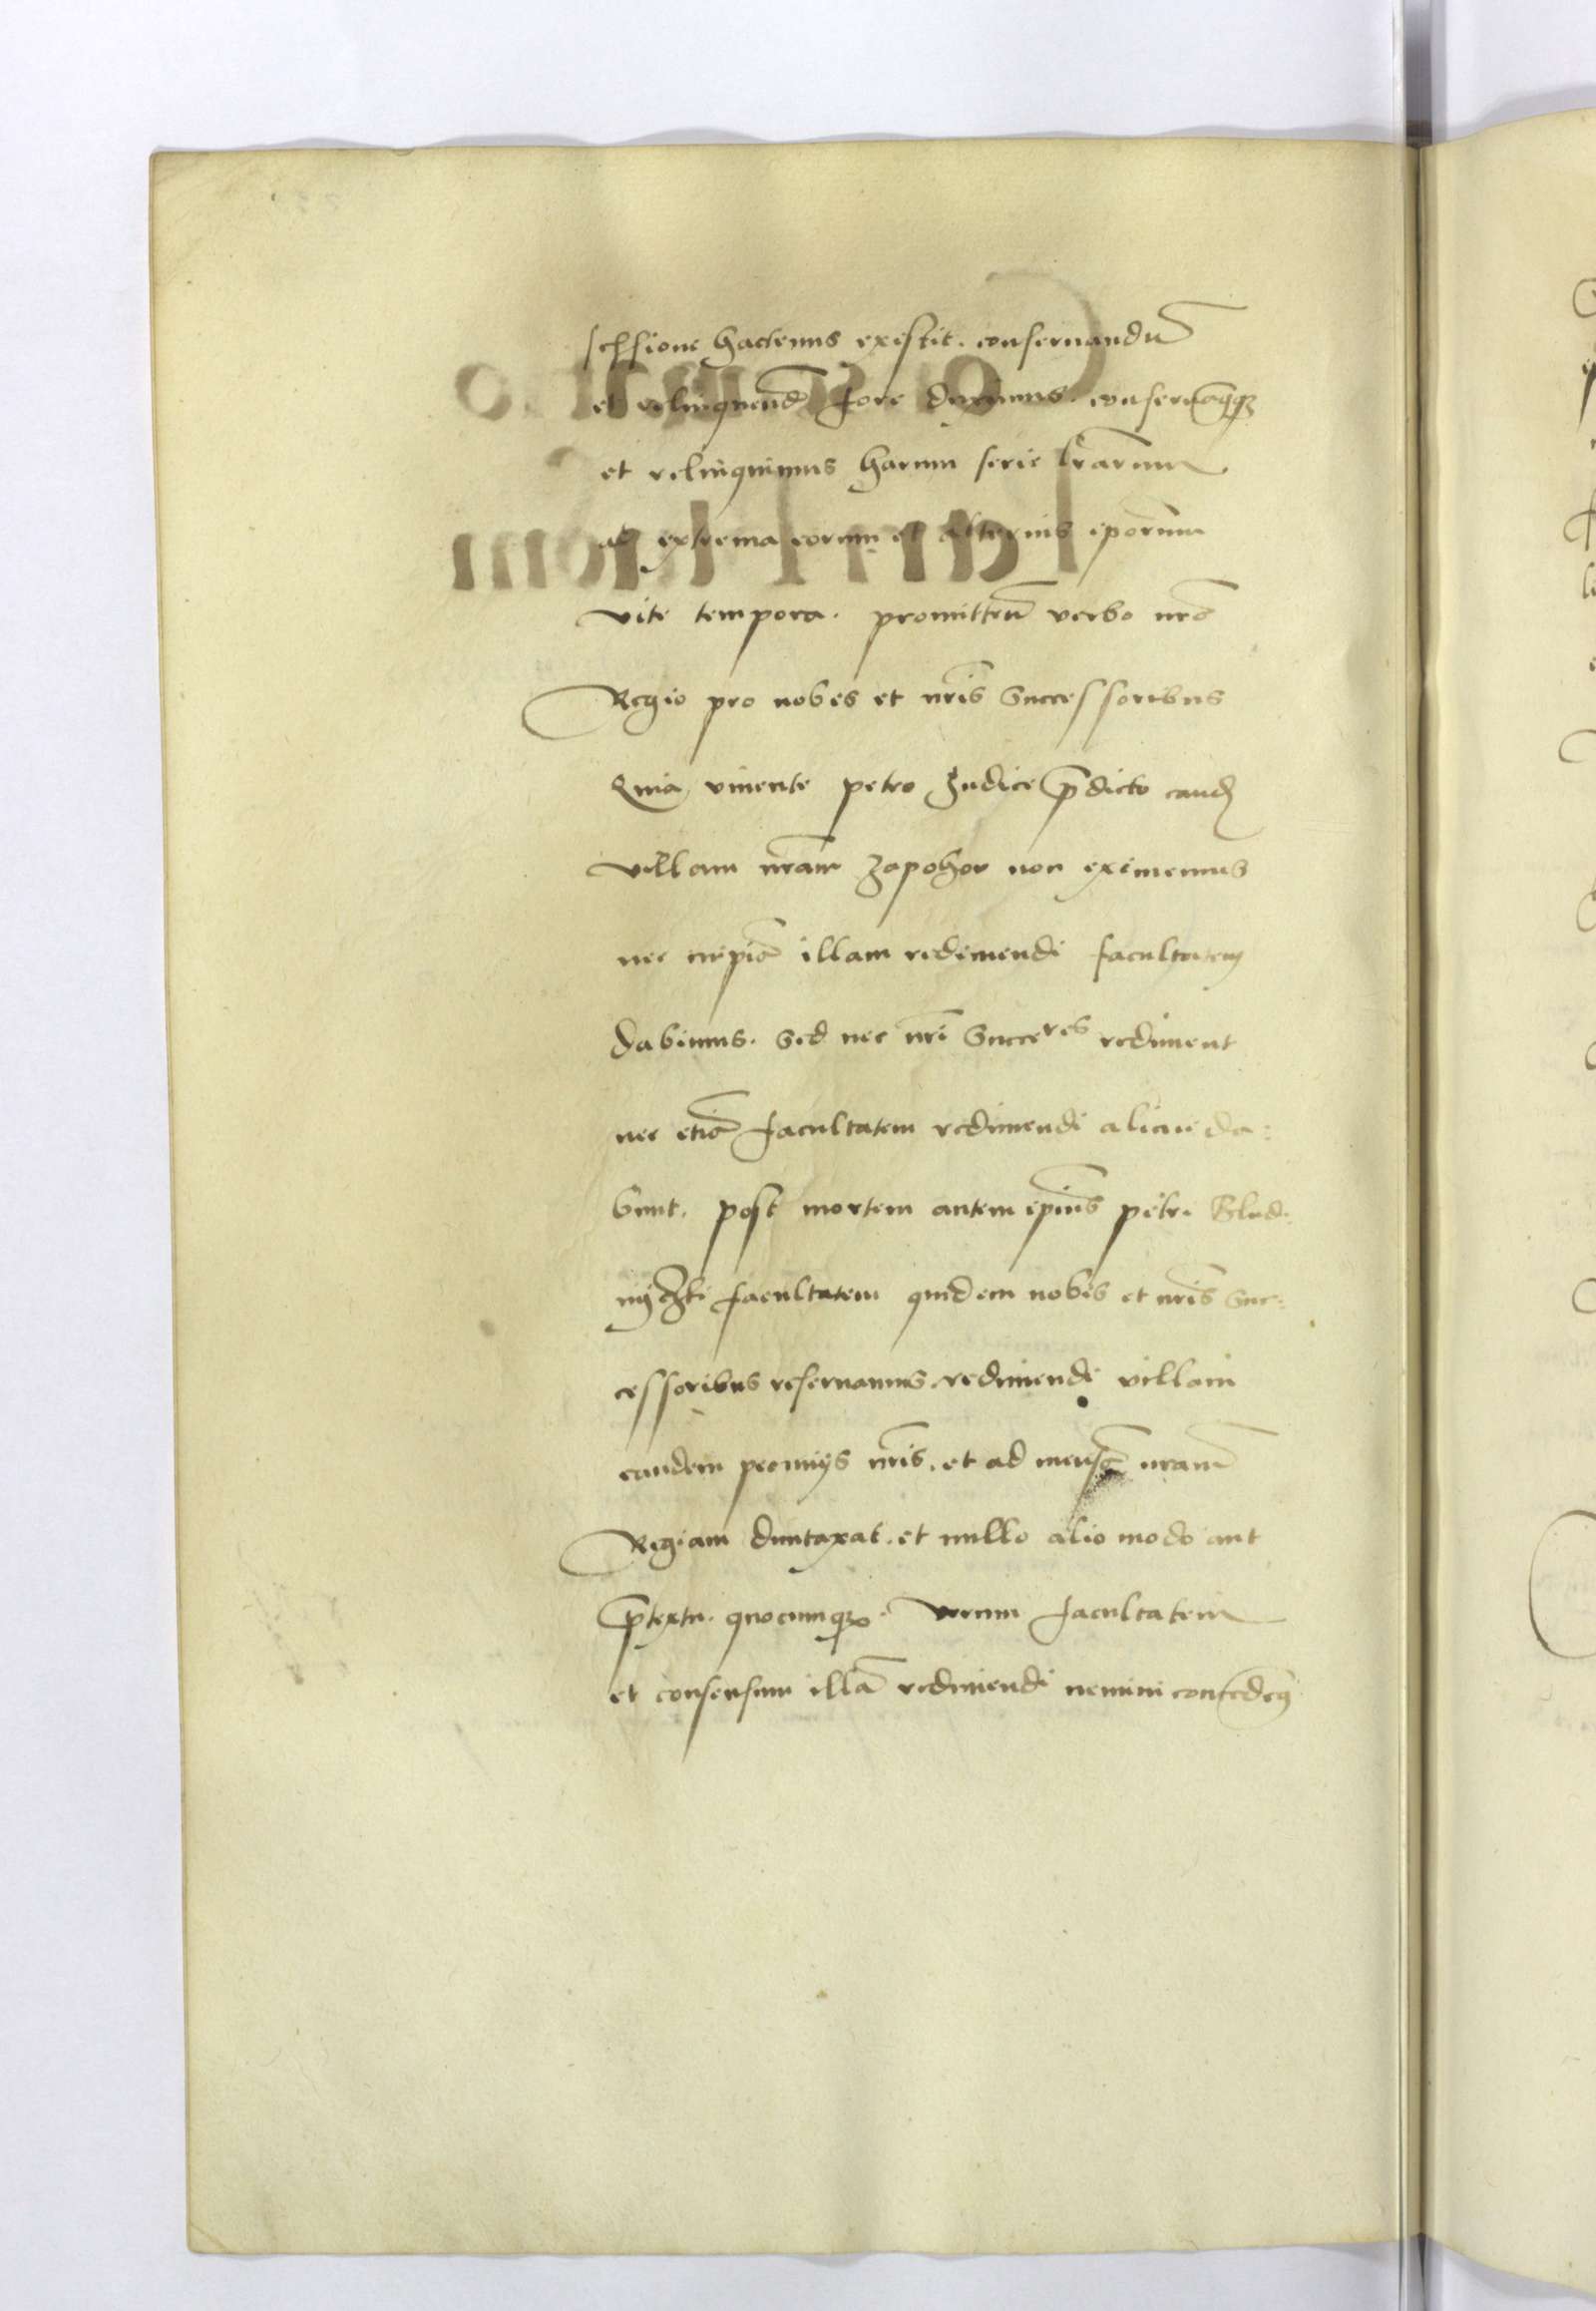 sessione hactenus existit. conseruandũ
et relinquend̃ fore duximus. conseruamq̃ꝫ
et relinquimus harum serie lr̃arum
ad extrema eorum et alterius ip̃orum
vite tempora. promitten̄ verbo nr̃o
Regio pro nobis et nr̃is Successoribus
Quia viuente petro Judice p̃dicto eand̃
villam nr̃am Zapohor non eximemus
nec cuipiã illam redimendi facultatem
dabimus. Sed nec nr̃i Succeʳᵉˢ rediment
nec etiã facultatem redimendi alicui da:
bunt. post mortem autem ip̃ius petri Blud:
nyczki facultatem quidem nobis et nr̃is Suc:
cessoribus reseruamus redimendi villam
eandem pecunijs nr̃is. et ad mensã nr̃am
Regiam duntaxat. et nullo alio modo aut
p̃textu quocumqꝫ. verum facultatem
et consensum illã redimendi nemini conceden̄